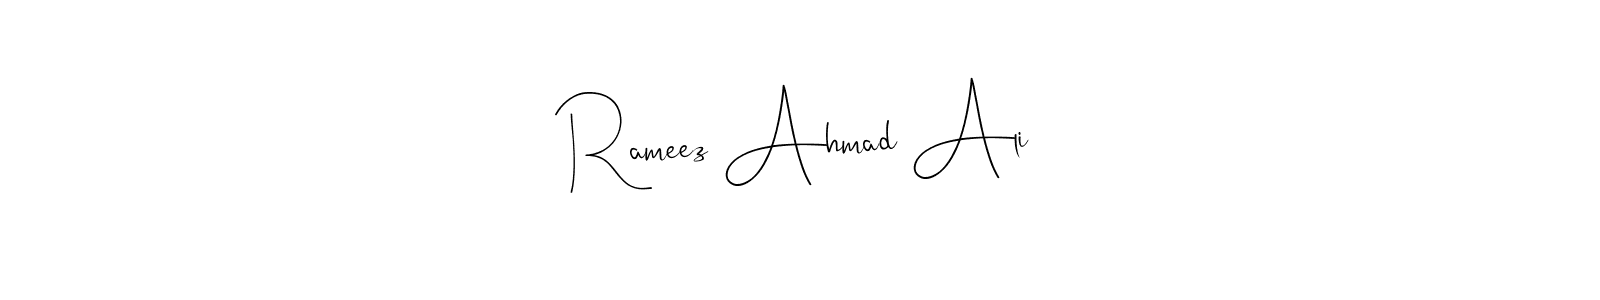 Rameez Ahmad Ali